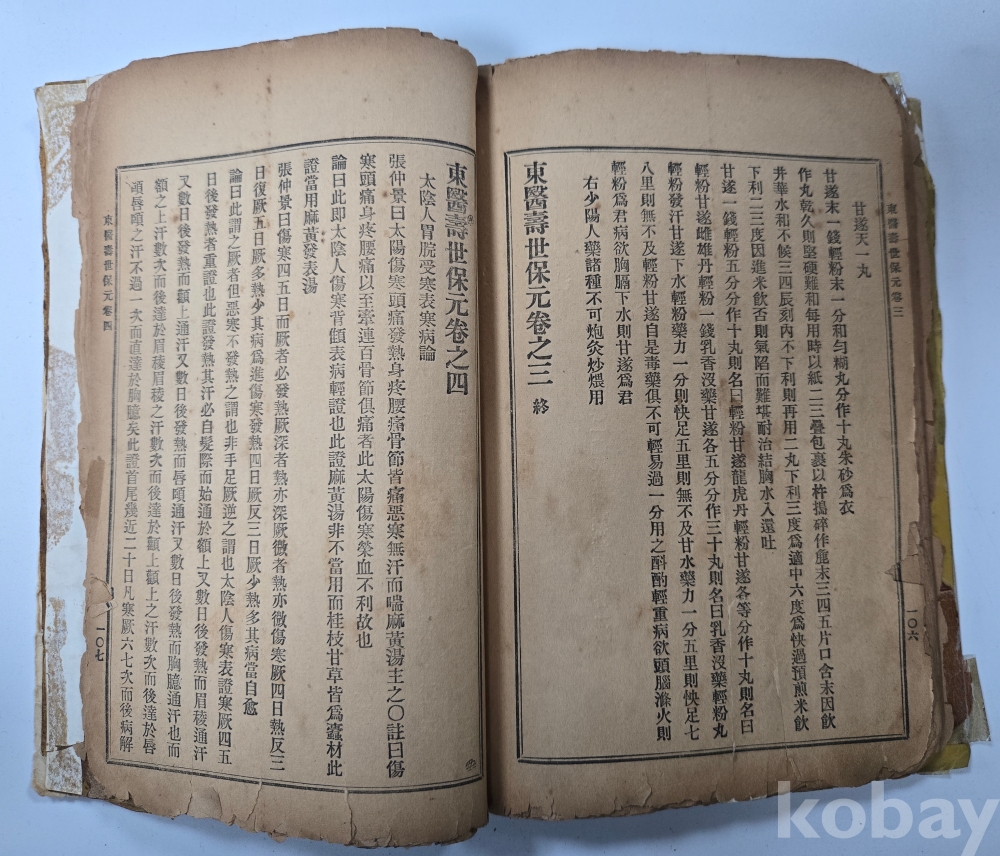 東醫壽世保元卷三
一〇六
甘遂天一丸
甘遂末一錢輕粉末一分和勻糊丸分作十丸朱砂爲衣
作丸乾久則堅硬難和每用時以紙二三疊包裹以杵搗碎作麁末三四五片口含末因飲
井華水和不候三四辰刻內不下利則再用二丸下利三度爲適中六度爲快過預煎米飲
下利二三度因進米飲否則氣陷而難堪耐治結胸水入還吐
甘遂一錢輕粉五分分作十丸則名曰輕粉甘遂龍虎丹輕粉甘遂各等分作十丸則名曰
輕粉甘遂雌雄丹輕粉一錢乳香沒藥甘遂各五分分作三十丸則名曰乳香沒藥輕粉丸
輕粉發汗甘遂下水輕粉藥力一分則快足五里則無不及甘水藥力一分五里則快足七
八里則無不及輕粉甘遂自是毒藥俱不可輕易過一分用之斟酌輕重病欲頭腦滌火則
輕粉爲君病欲胸膈下水則甘遂爲君
右少陽人藥諸種不可炮灸炒煨用
東醫壽世保元卷之三 終
東醫壽世保元卷之四
太陰人胃脘受寒表寒病論
張仲景曰太陽傷寒頭痛發熱身疼腰痛骨節皆痛惡寒無汗而喘麻黃湯主之〇註曰傷
寒頭痛身疼腰痛以至牽連百骨節俱痛者此太陽傷寒榮血不利故也
論曰此即太陰人傷寒背顀表病輕證也此證麻黃湯非不當用而桂枝甘草皆爲蠧材此
證當用麻黃發表湯
張仲景曰傷寒四五日而厥者必發熱厥深者熱亦深厥微者熱亦微傷寒厥四日熱反三
日復厥五日厥多熱少其病爲進傷寒發熱四日厥反三日厥少熱多其病當自愈
論曰此謂之厥者但惡寒不發熱之謂也非手足厥逆之謂也太陰人傷寒表證寒厥四五
日後發熱者重證也此證發熱其汗必自髮際而始通於額上又數日後發熱而眉稜通汗
又數日後發熱而顴上通汗又數日後發熱而唇頤通汗又數日後發熱而胸臆通汗也而
額上之汗數次而後達於眉稜眉稜之汗數次而後達於顴上顴上之汗數次而後達於唇
頤唇頤之汗不過一次而直達於胸臆矣此證首尾幾近二十日凡寒厥六七次而後病解
東醫壽世保元卷四
一〇七
kobay